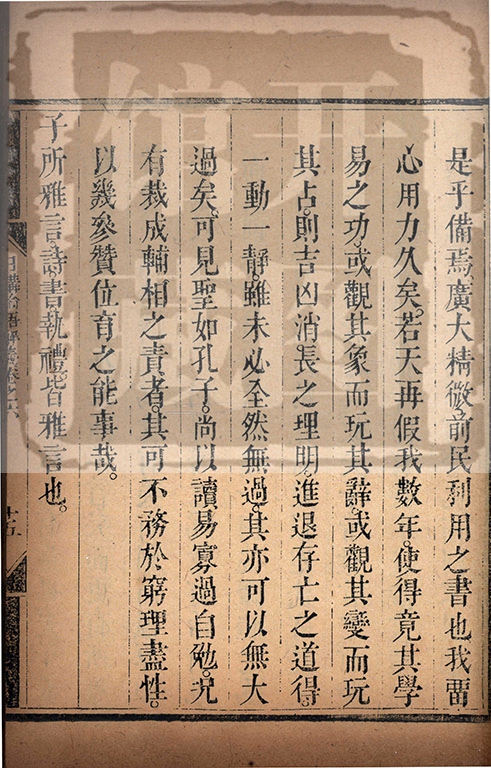 是乎備焉廣大精微前民利用之書也我畱
心用力久矣。若天再假我數年。使得竟其學
易之功。或觀其象而玩其辭。或觀其變而玩
其占。則吉凶消長之理明進退存亡之道得。
一動一靜。雖未必全然無過。其亦可以無大
過矣。可見聖如孔子。尚以讀易寡過自勉。况
有裁成輔相之責者。其可不務於窮理盡性。
以幾參贊位育之能事哉。
子所雅言。詩。書執禮。皆雅言也。
日講論語解義卷之六
十五